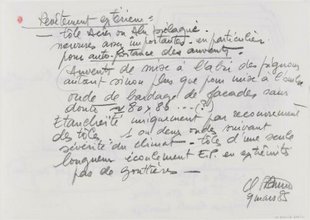 Revêtement extérieur =
- tôle acier ou Alu prélaqué -
nervures assez importantes - en particulier
pour auto-portance des auvents -
Auvents de mise à l'abri des pignons
autant sinon plus que pour mise à l'ombre
onde de bardage de façades sans
doute ≈ 80 x 85 ... (?)
Etancheité uniquement par recouvrement
des tôles 1 ou deux ondes suivant
sévérité du climat - tôles d'une seule
longueur écoulement E.P. en extrémités
pas de gouttières -
9 mars 85